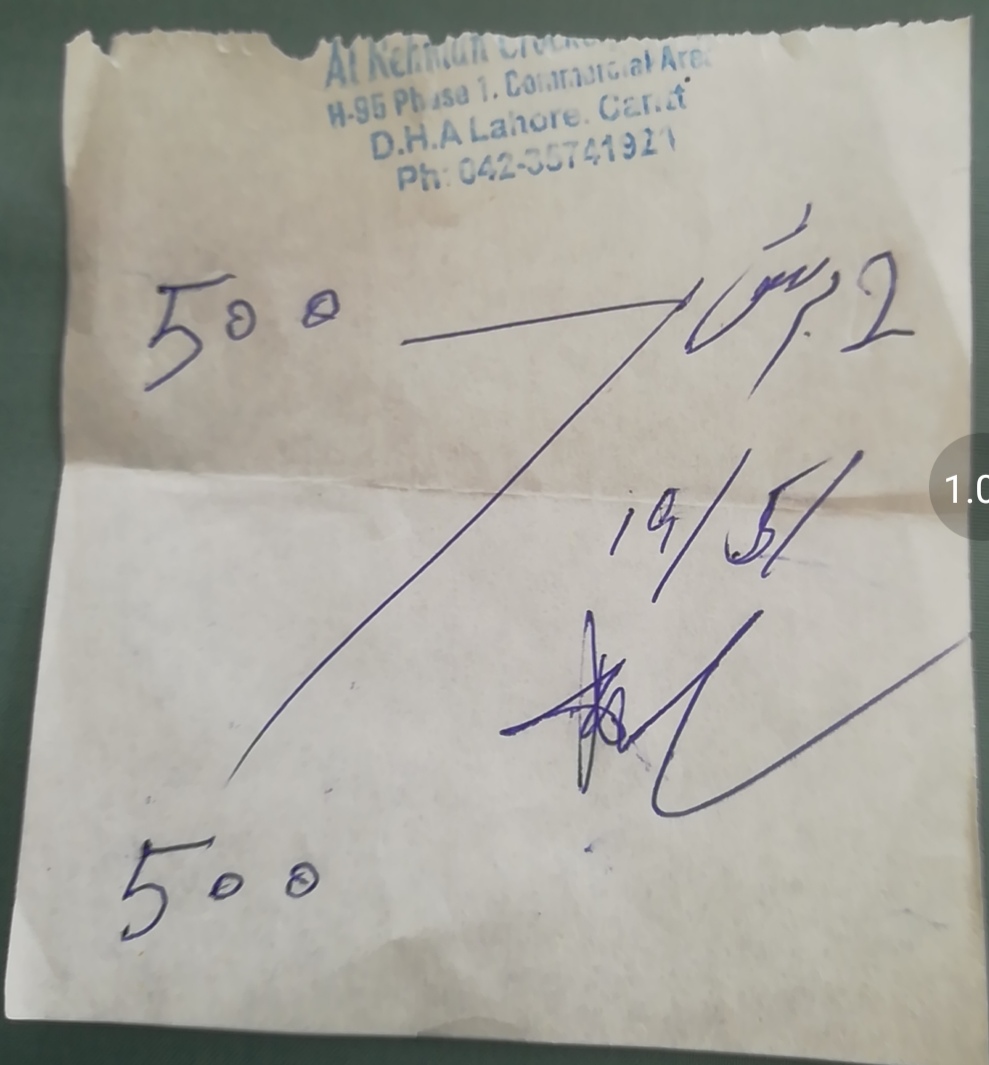 Al Rehman Crocke
H-96 Phase 1. Commercial Are
D.H.A Lahore. Cantt
Ph: 042-35741921
500 2
19/5/
500
1.0